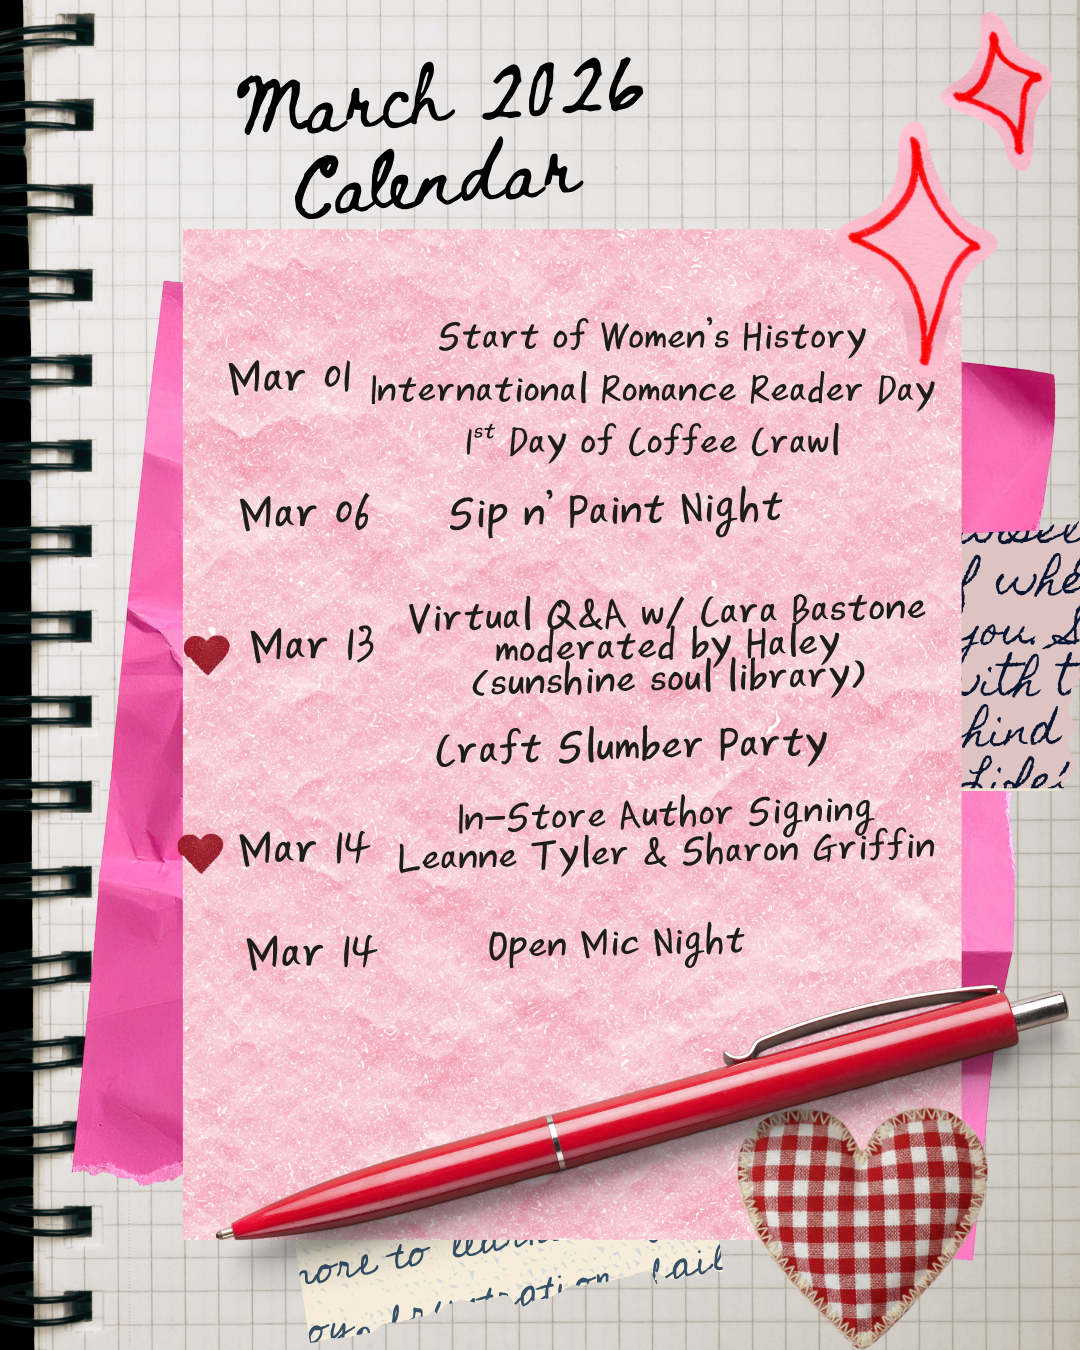 March 2026
Calendar
Mar 01
Start of Women's History
International Romance Reader Day
1st Day of Coffee Crawl
Mar 06
Sip n' Paint Night
Mar 13
Virtual Q&A w/ Cara Bastone
moderated by Haley
(sunshine soul library)
Craft Slumber Party
Mar 14
In-Store Author Signing
Leanne Tyler & Sharon Griffin
Mar 14
Open Mic Night
whe
you. S
with t
hind
more to